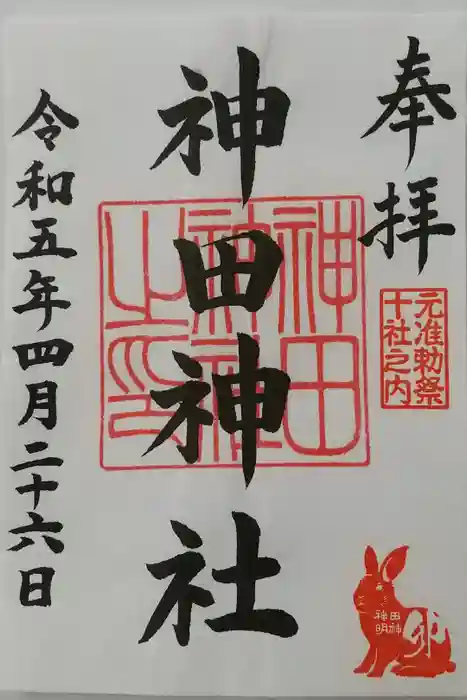 奉拝
元准勅祭
十社之内
神田神社
神田
神社
之印
令和五年四月二十六日
卯